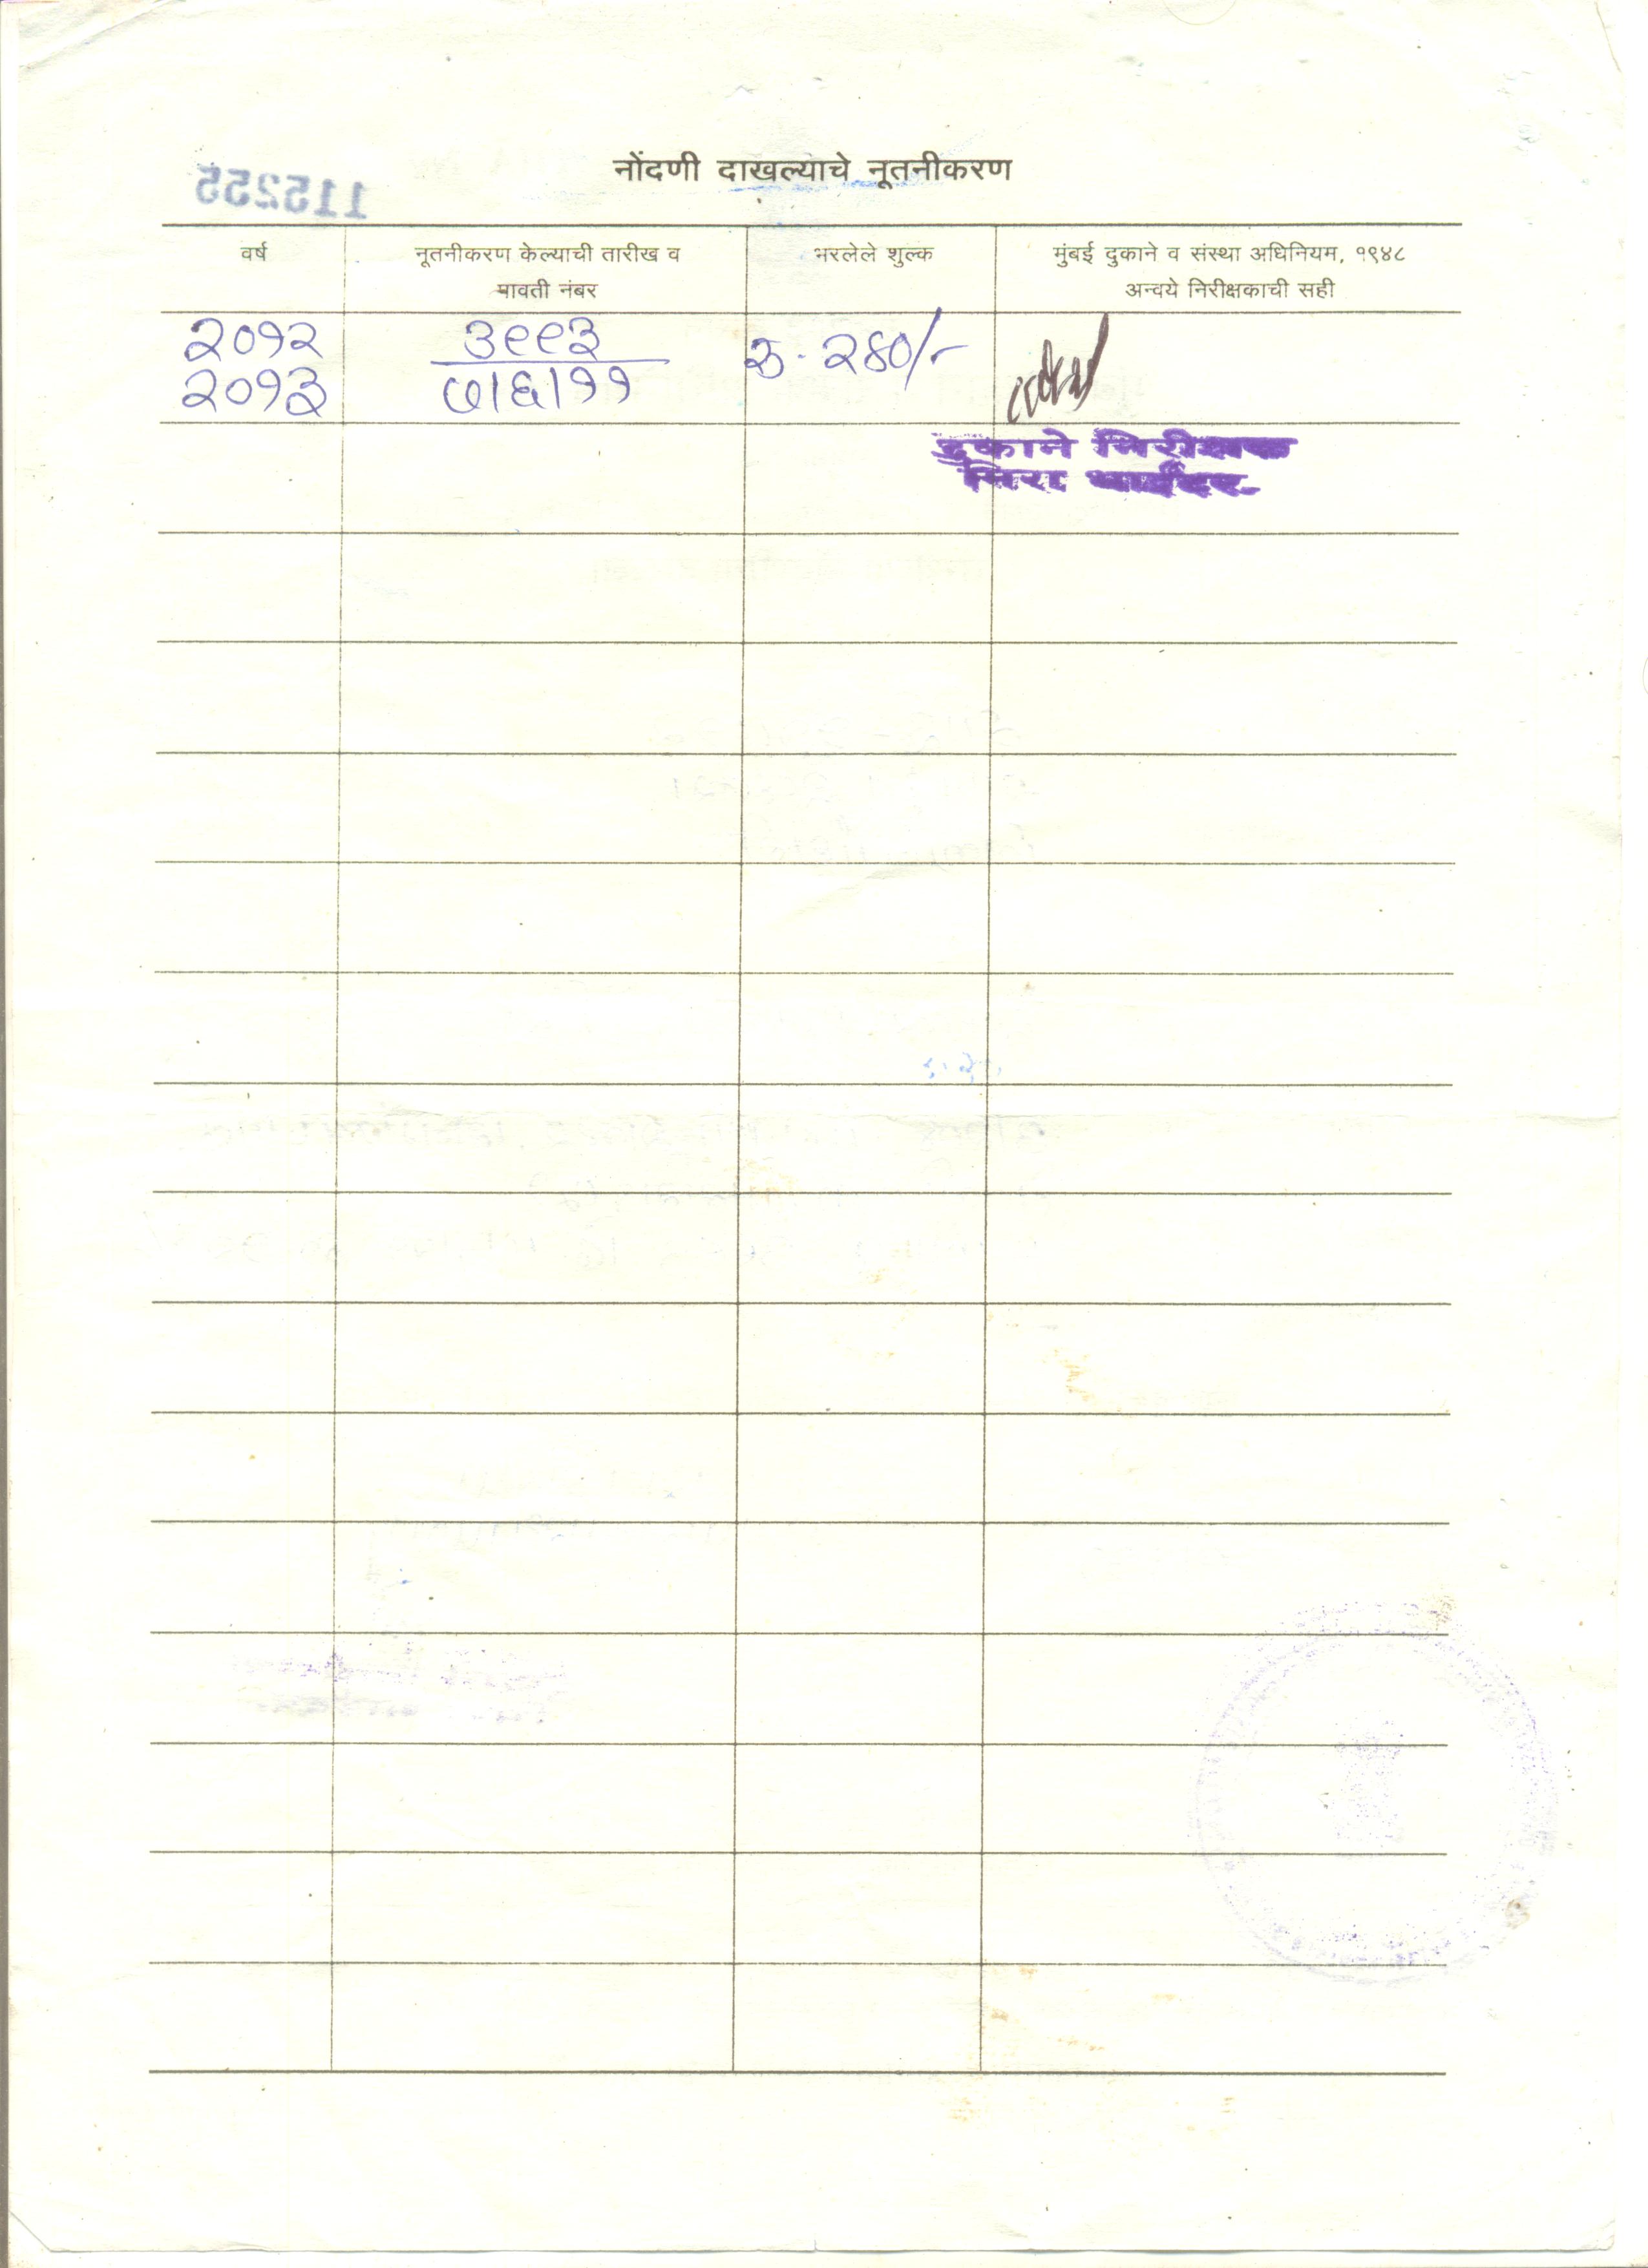 नोंदणी दाखल्याचे नूतनीकरण
115255
वर्ष
नूतनीकरण केल्याची तारीख व
पावती नंबर
भरलेले शुल्क
मुंबई दुकाने व संस्था अधिनियम, १९४८
अन्वये निरीक्षकाची सही
२०१२
२०१३
३९९३
७।६।११
रु. २४०/-
दुकाने निरीक्षक
मिरा भाईंदर.